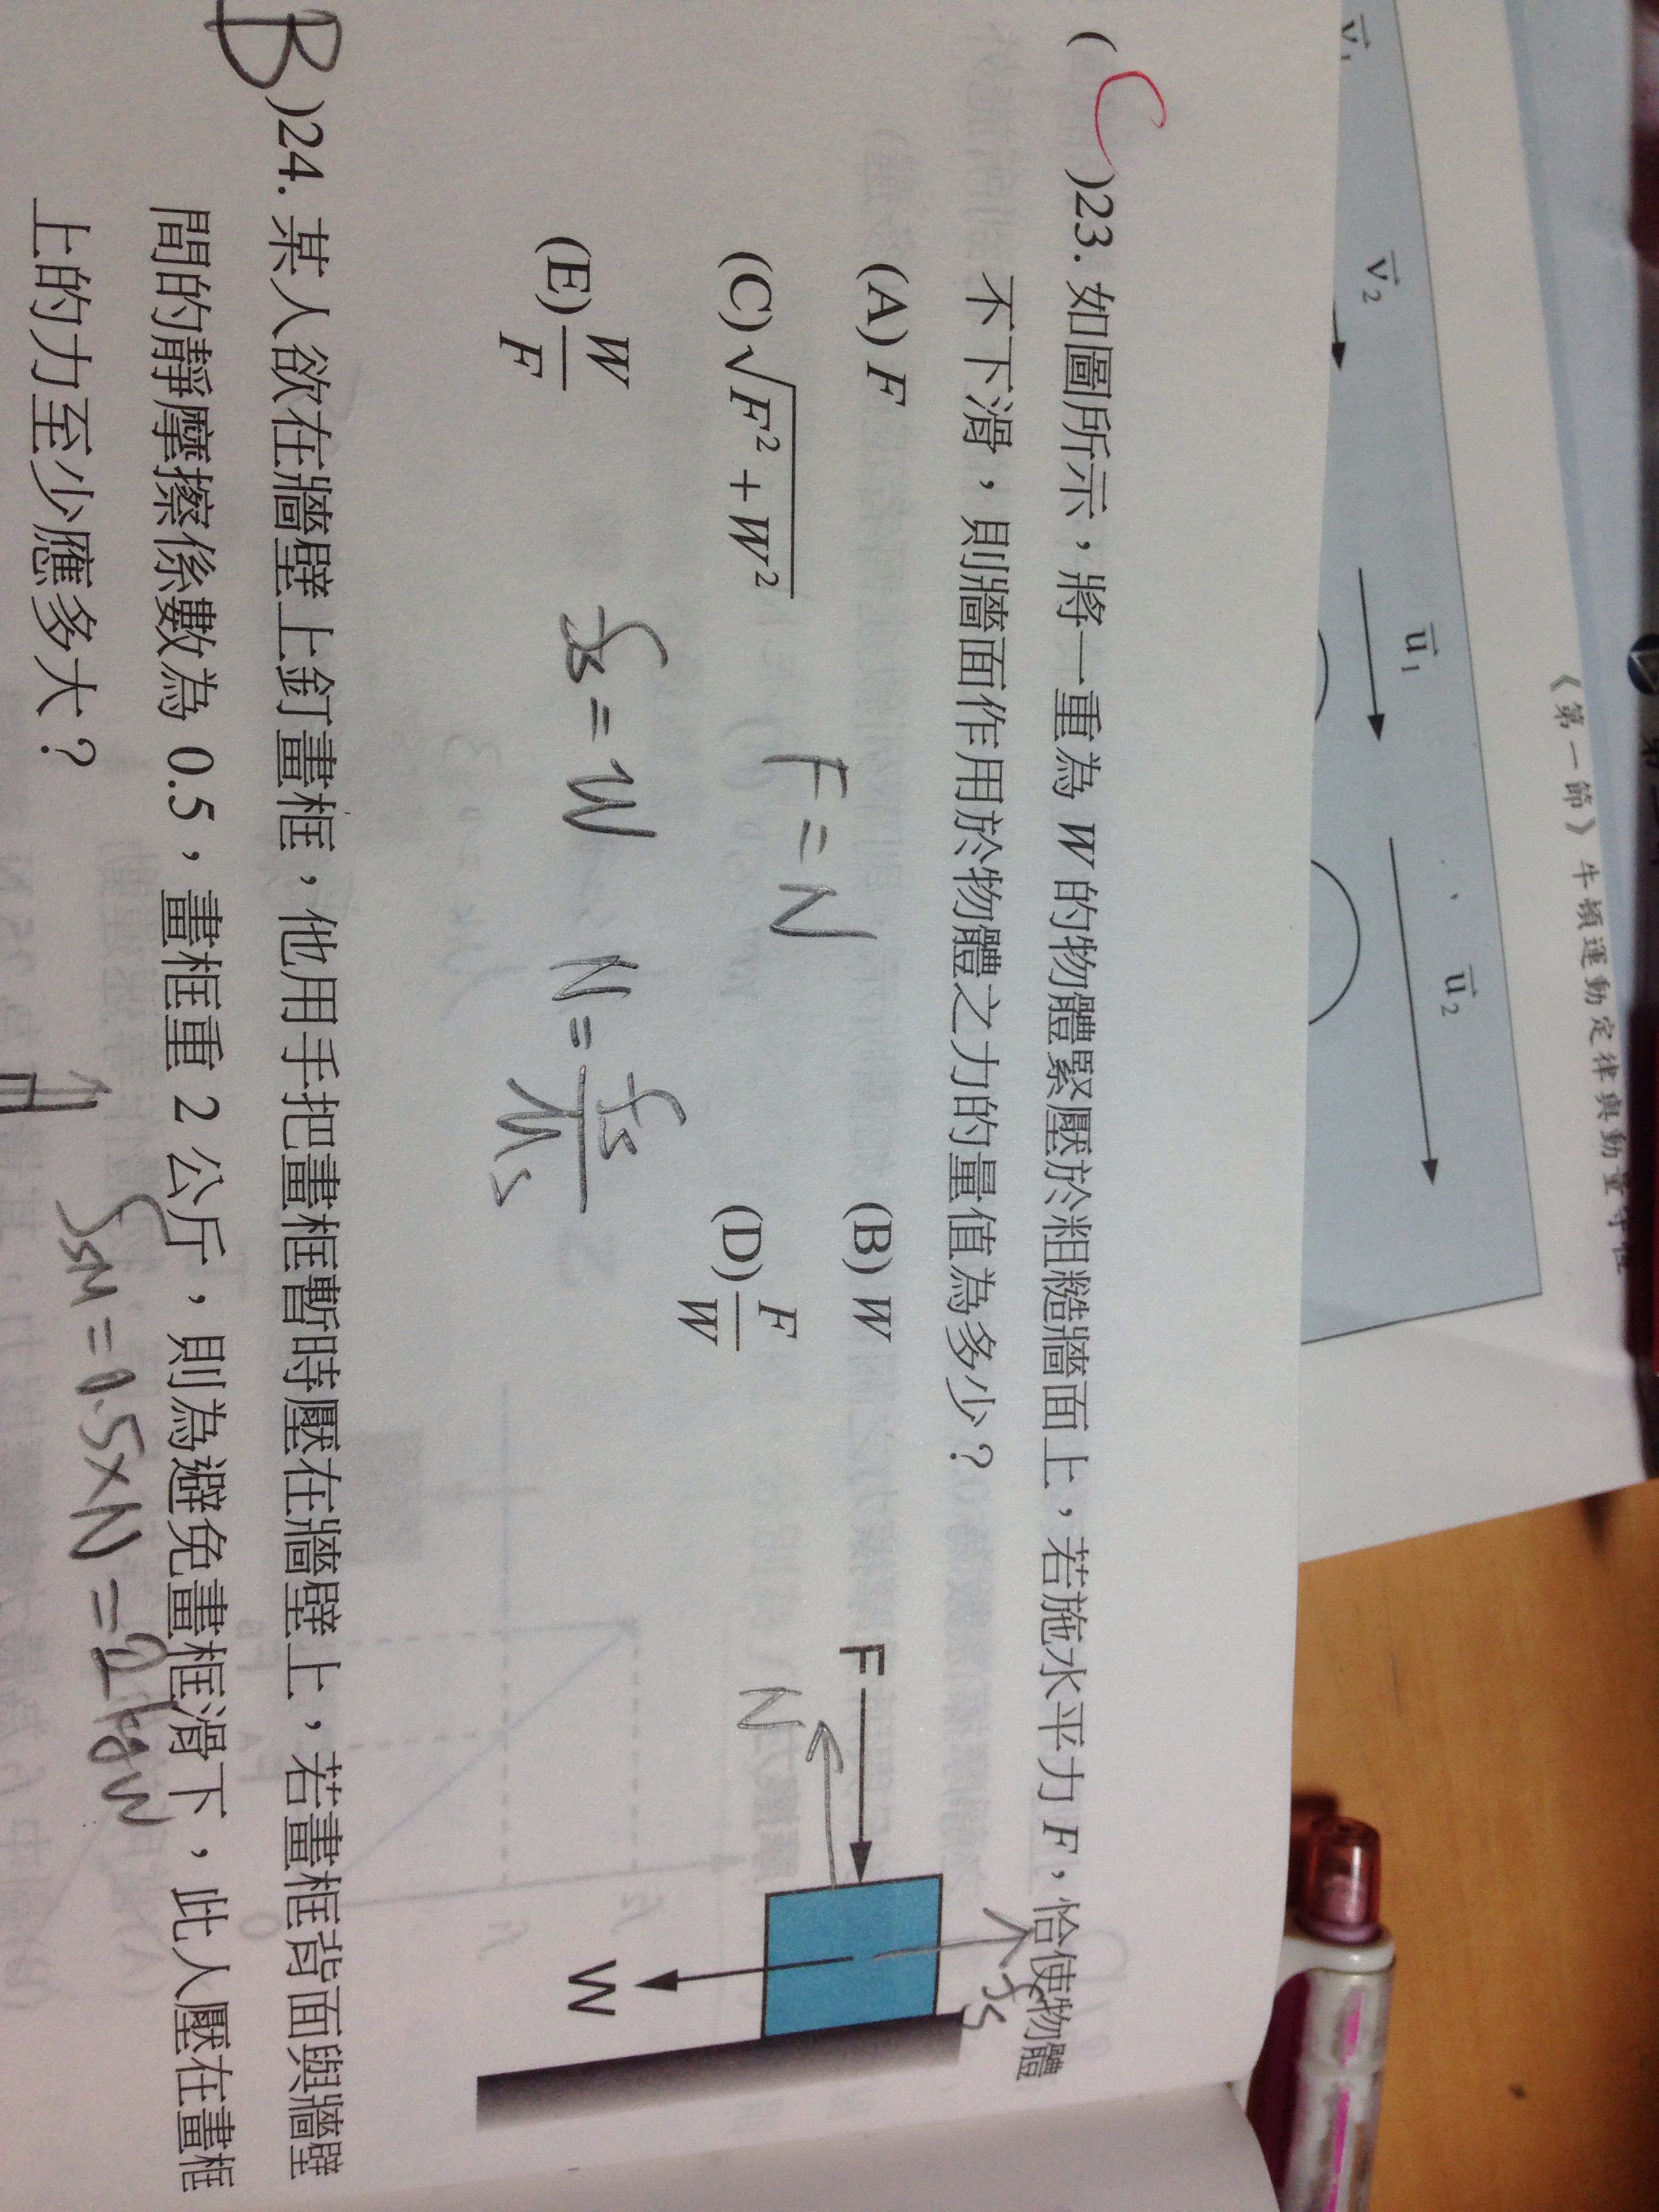 《第一節》牛頓運動定律與動量守恆
v₁ v₂ u₁ u₂
( C )23. 如圖所示，將一重為 W 的物體緊壓於粗糙牆面上，若施水平力 F，恰使物體
不下滑，則牆面作用於物體之力的量值為多少？
(A) F (B) W
(C) √(F²+W²) (D) F/W
(E) W/F
F = N
fs = W N = fs/μs
F
N
fs
W
B )24. 某人欲在牆壁上釘畫框，他用手把畫框暫時壓在牆壁上，若畫框背面與牆壁
間的靜摩擦係數為 0.5，畫框重 2 公斤，則為避免畫框滑下，此人壓在畫框
上的力至少應多大？
fsM = 0.5×N = 2kgw